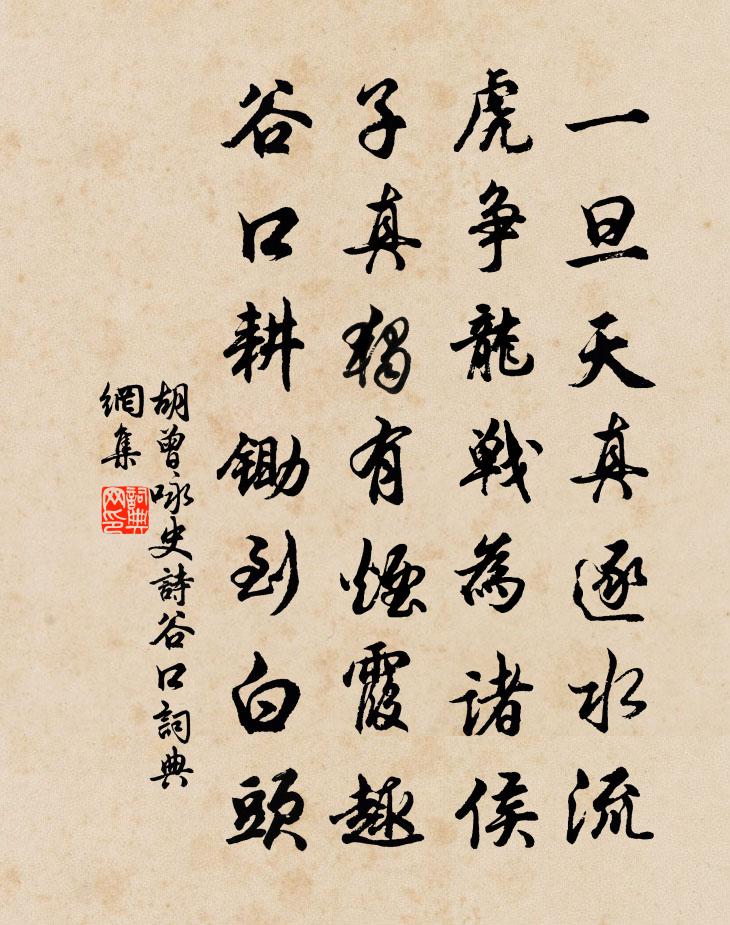 一旦天真逐水流
虎争龍戦為諸侯
子真獨有煙霞趣
谷口耕鋤到白頭
胡曾詠史詩谷口詞典
網集
詞典
网印